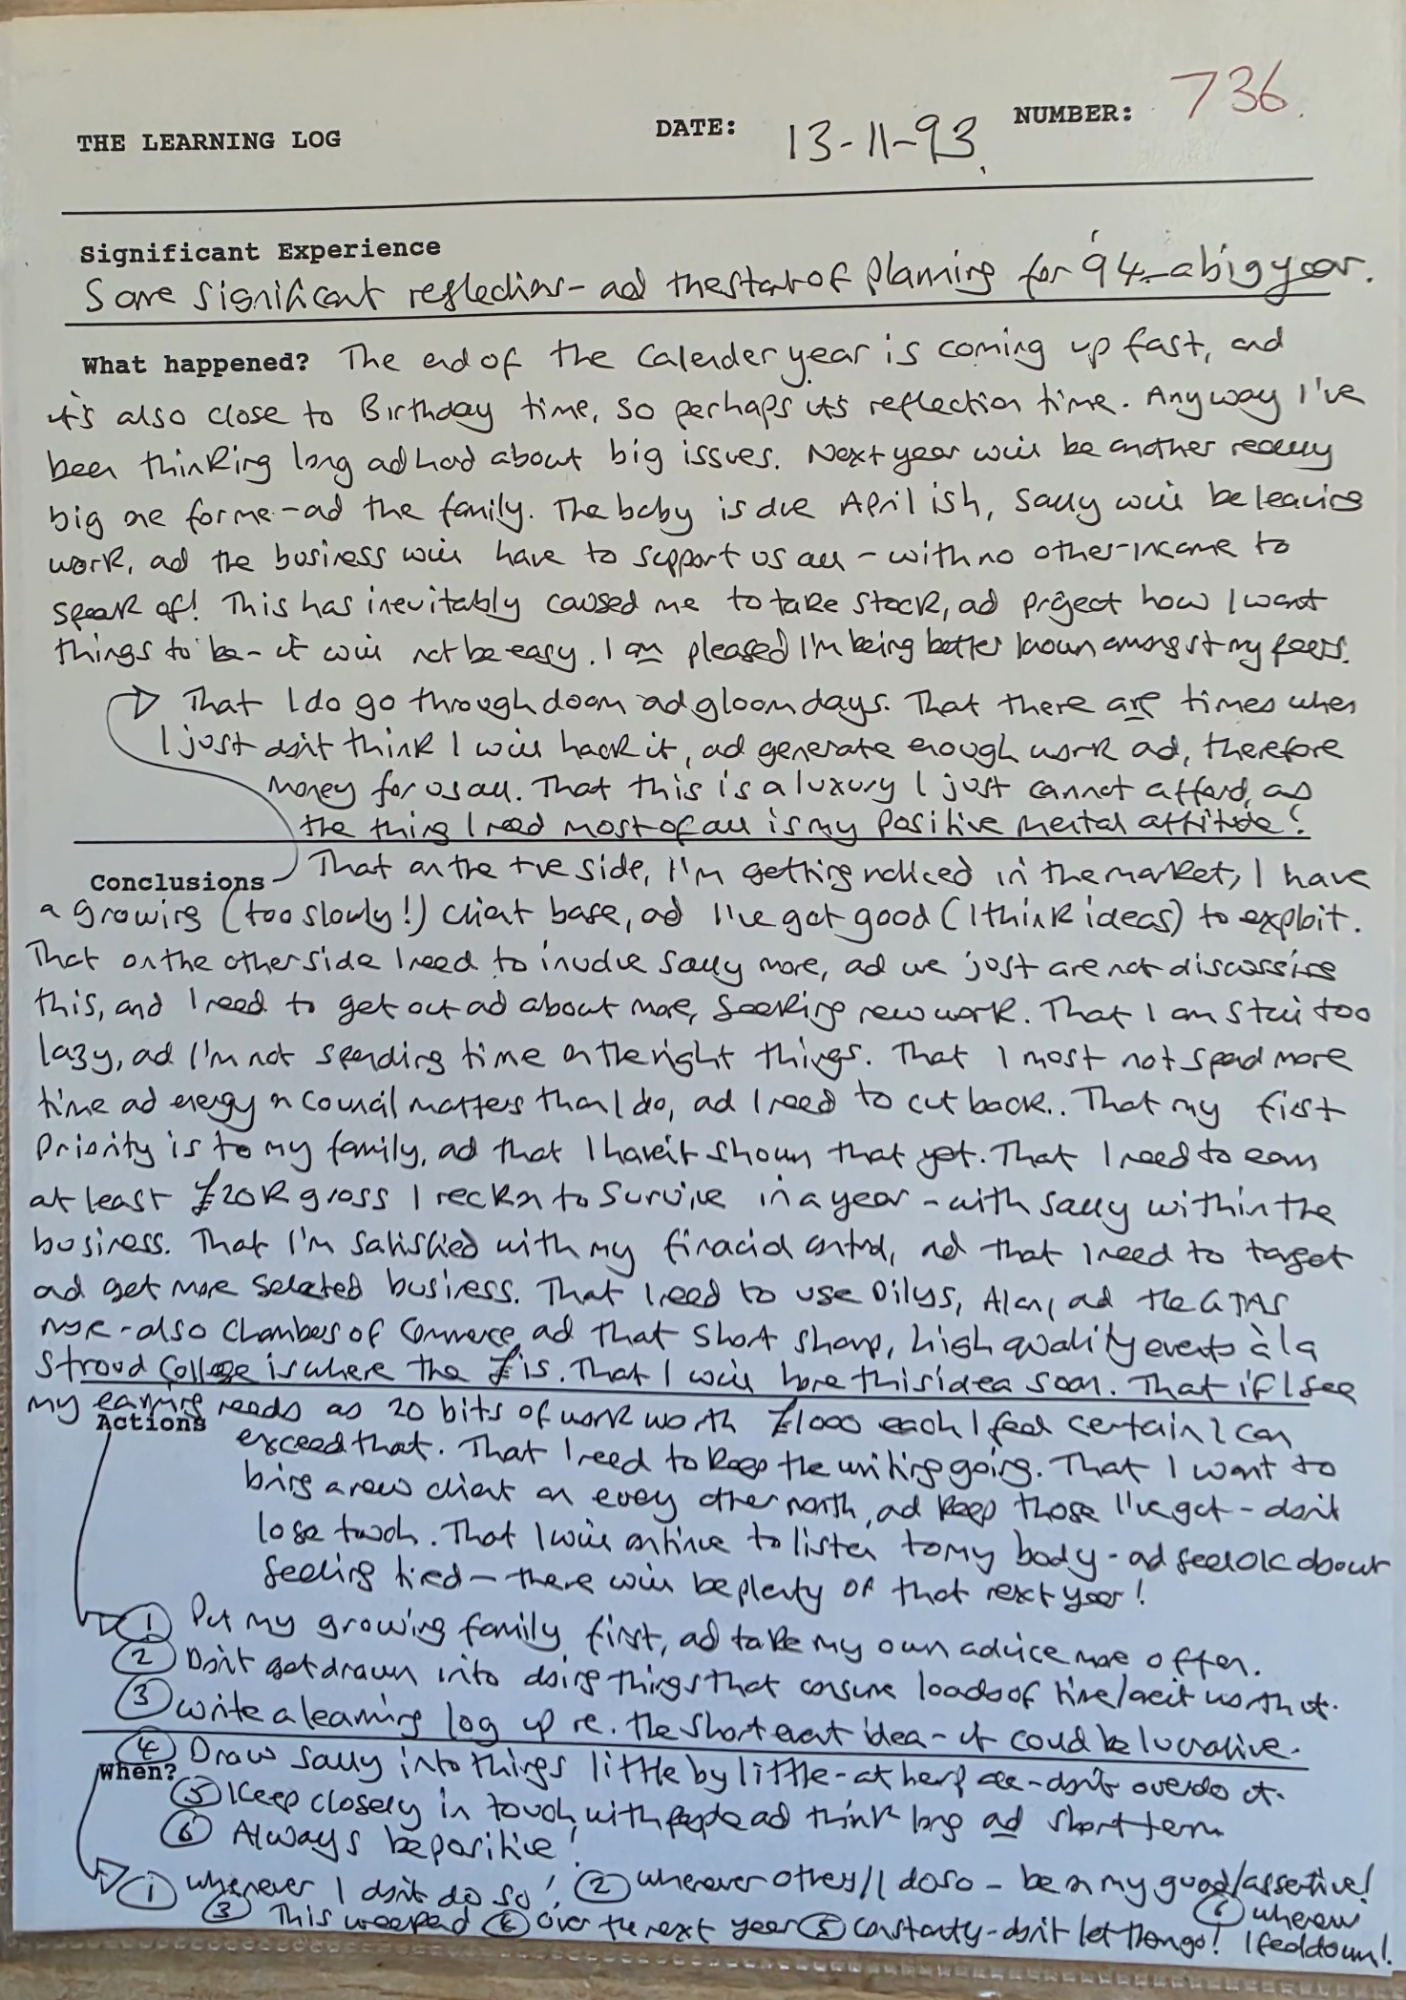 THE LEARNING LOG DATE: 13-11-93. NUMBER: 736.
Significant Experience
Some significant reflections - and the start of planning for '94 - a big year.
What happened? The end of the Calender year is coming up fast, and
it's also close to Birthday time, so perhaps it's reflection time. Anyway I've
been thinking long and hard about big issues. Next year will be another really
big one for me - and the family. The baby is due April ish, Sally will be leaving
work, and the business will have to support us all - with no other income to
speak of! This has inevitably caused me to take stock, and project how I want
things to be - it will not be easy. I am pleased I'm being better known amongst my peers.
That I do go through doom and gloom days. That there are times when
I just don't think I will hack it, and generate enough work and, therefore
money for us all. That this is a luxury I just cannot afford, as
the thing I need most of all is my positive mental attitude!
Conclusions That on the +ve side, I'm getting noticed in the market, I have
a growing (too slowly!) client base, and I've got good (I think ideas) to exploit.
That on the other side I need to involve Sally more, and we just are not discussing
this, and I need to get out and about more, seeking new work. That I am still too
lazy, and I'm not spending time on the right things. That I must not spend more
time and energy on Council matters than I do, and I need to cut back.. That my first
Priority is to my family, and that I haven't shown that yet. That I need to earn
at least £20K gross I reckon to survive in a year - with Sally within the
business. That I'm satisfied with my financial control, and that I need to target
and get more selected business. That I need to use Dilys, Alan, and the GTAS
more - also Chambers of Commerce, and that short sharp, high quality events à la
Stroud College is where the £ is. That I will hone this idea soon. That if I see
my earning needs as 20 bits of work worth £1000 each I feel certain I can
Actions
exceed that. That I need to keep the writing going. That I want to
bring a new client on every other month, and keep those I've got - don't
lose touch. That I will continue to listen to my body - and feel OK about
feeling tired - there will be plenty of that next year!
1 Put my growing family first, and take my own advice more often.
2 Don't get drawn into doing things that consume loads of time/aren't worth it.
3 Write a learning log up re. the short event idea - it could be lucrative.
4 Draw Sally into things little by little - at her pace - don't overdo it.
When?
5 Keep closely in touch with people and think long and short term
6 Always be positive!
1 Whenever I don't do so! 2 Wherever others/I do so - be on my guard/assertive!
3 This weekend 4 Over the next year 5 Constantly - don't let them go! 6 Whenever
I feel down!